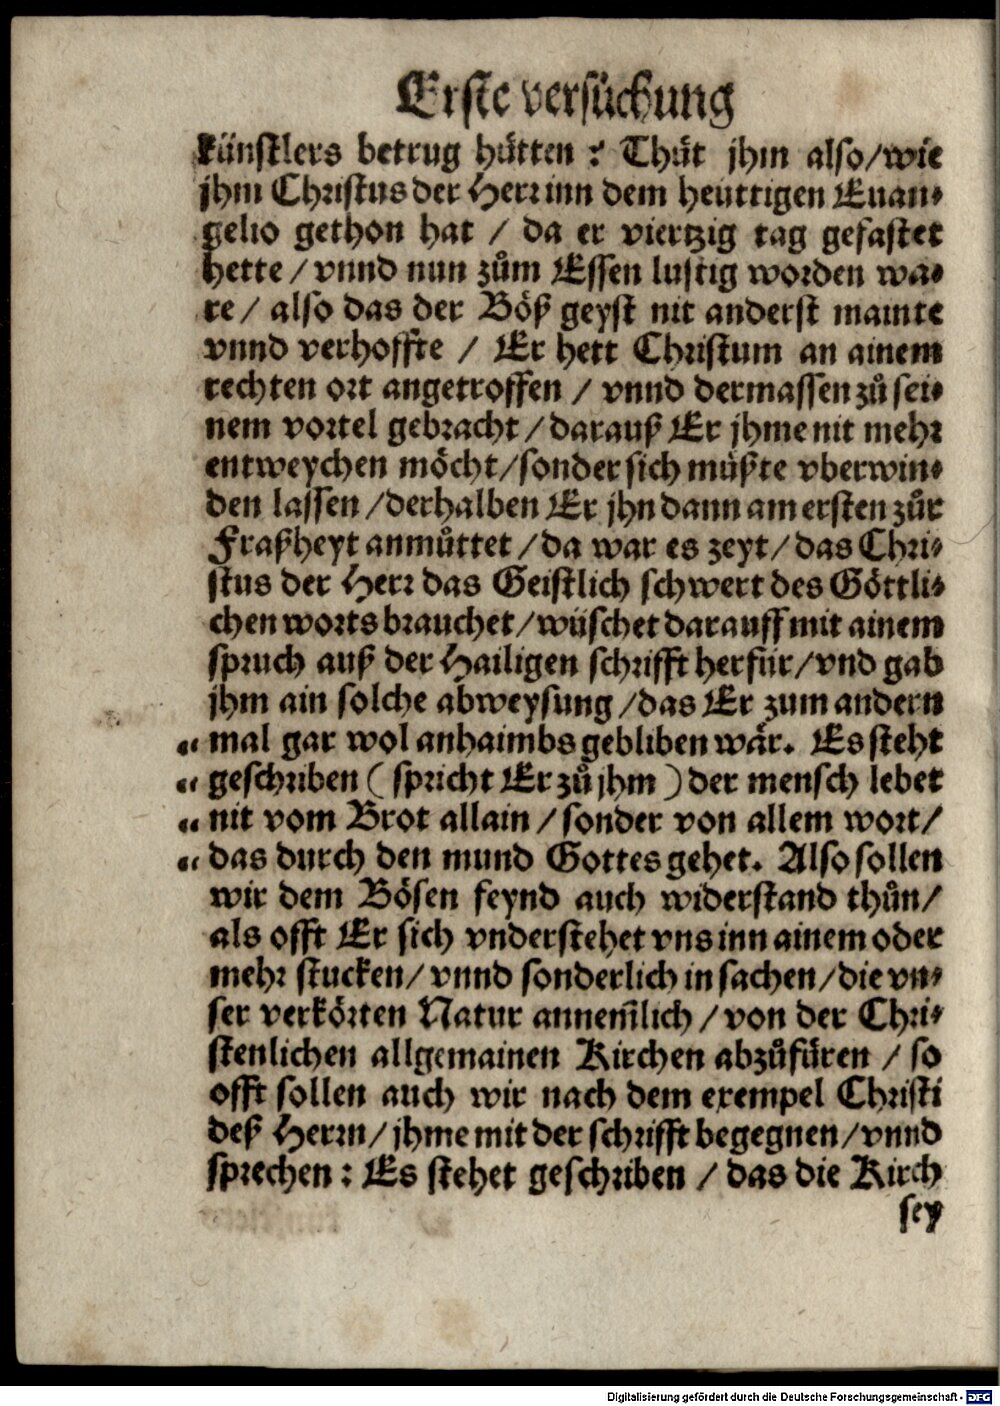 Erste versůchung
künstlers betrug hütten? Thůt jhm also/wie
jhm Christus der Herr inn dem heüttigen Euan-
gelio gethon hat / da er viertzig tag gefastet
hette / vnnd nun zům Essen lustig worden wa-
re / also das der Böß geyst nit anderst mainte
vnnd verhoffte / Er hett Christum an ainem
rechten ort angetroffen / vnnd dermassen zů sei-
nem vortel gebracht / darauß Er jhme nit mehr
entweychen möcht/sonder sich müßte vberwin-
den lassen /derhalben Er jhn dann am ersten zůr
Fraßheyt anmůttet /da war es zeyt/ das Chri-
stus der Herr das Geistlich schwert des Göttli-
chen worts brauchet/wüschet darauff mit ainem
spruch auß der Hailigen schrifft herfür/vnd gab
jhm ain solche abweysung /das Er zum andern
„ mal gar wol anhaimbs gebliben wär. Es steht
„ geschriben ( spricht Er zů jhm ) der mensch lebet
„ nit vom Brot allain / sonder von allem wort/
„ das durch den mund Gottes gehet. Also sollen
wir dem Bösen feynd auch widerstand thůn/
als offt Er sich vnderstehet vns inn ainem oder
mehr stucken/ vnnd sonderlich in sachen/die vn-
ser verkörten Natur annem̃lich / von der Chri-
stenlichen allgemainen Kirchen abzůfüren / so
offt sollen auch wir nach dem exempel Christi
deß Herrn/ jhme mit der schrifft begegnen/vnnd
sprechen: Es stehet geschriben / das die Kirch
sey
Digitalisierung gefördert durch die Deutsche Forschungsgemeinschaft - DFG